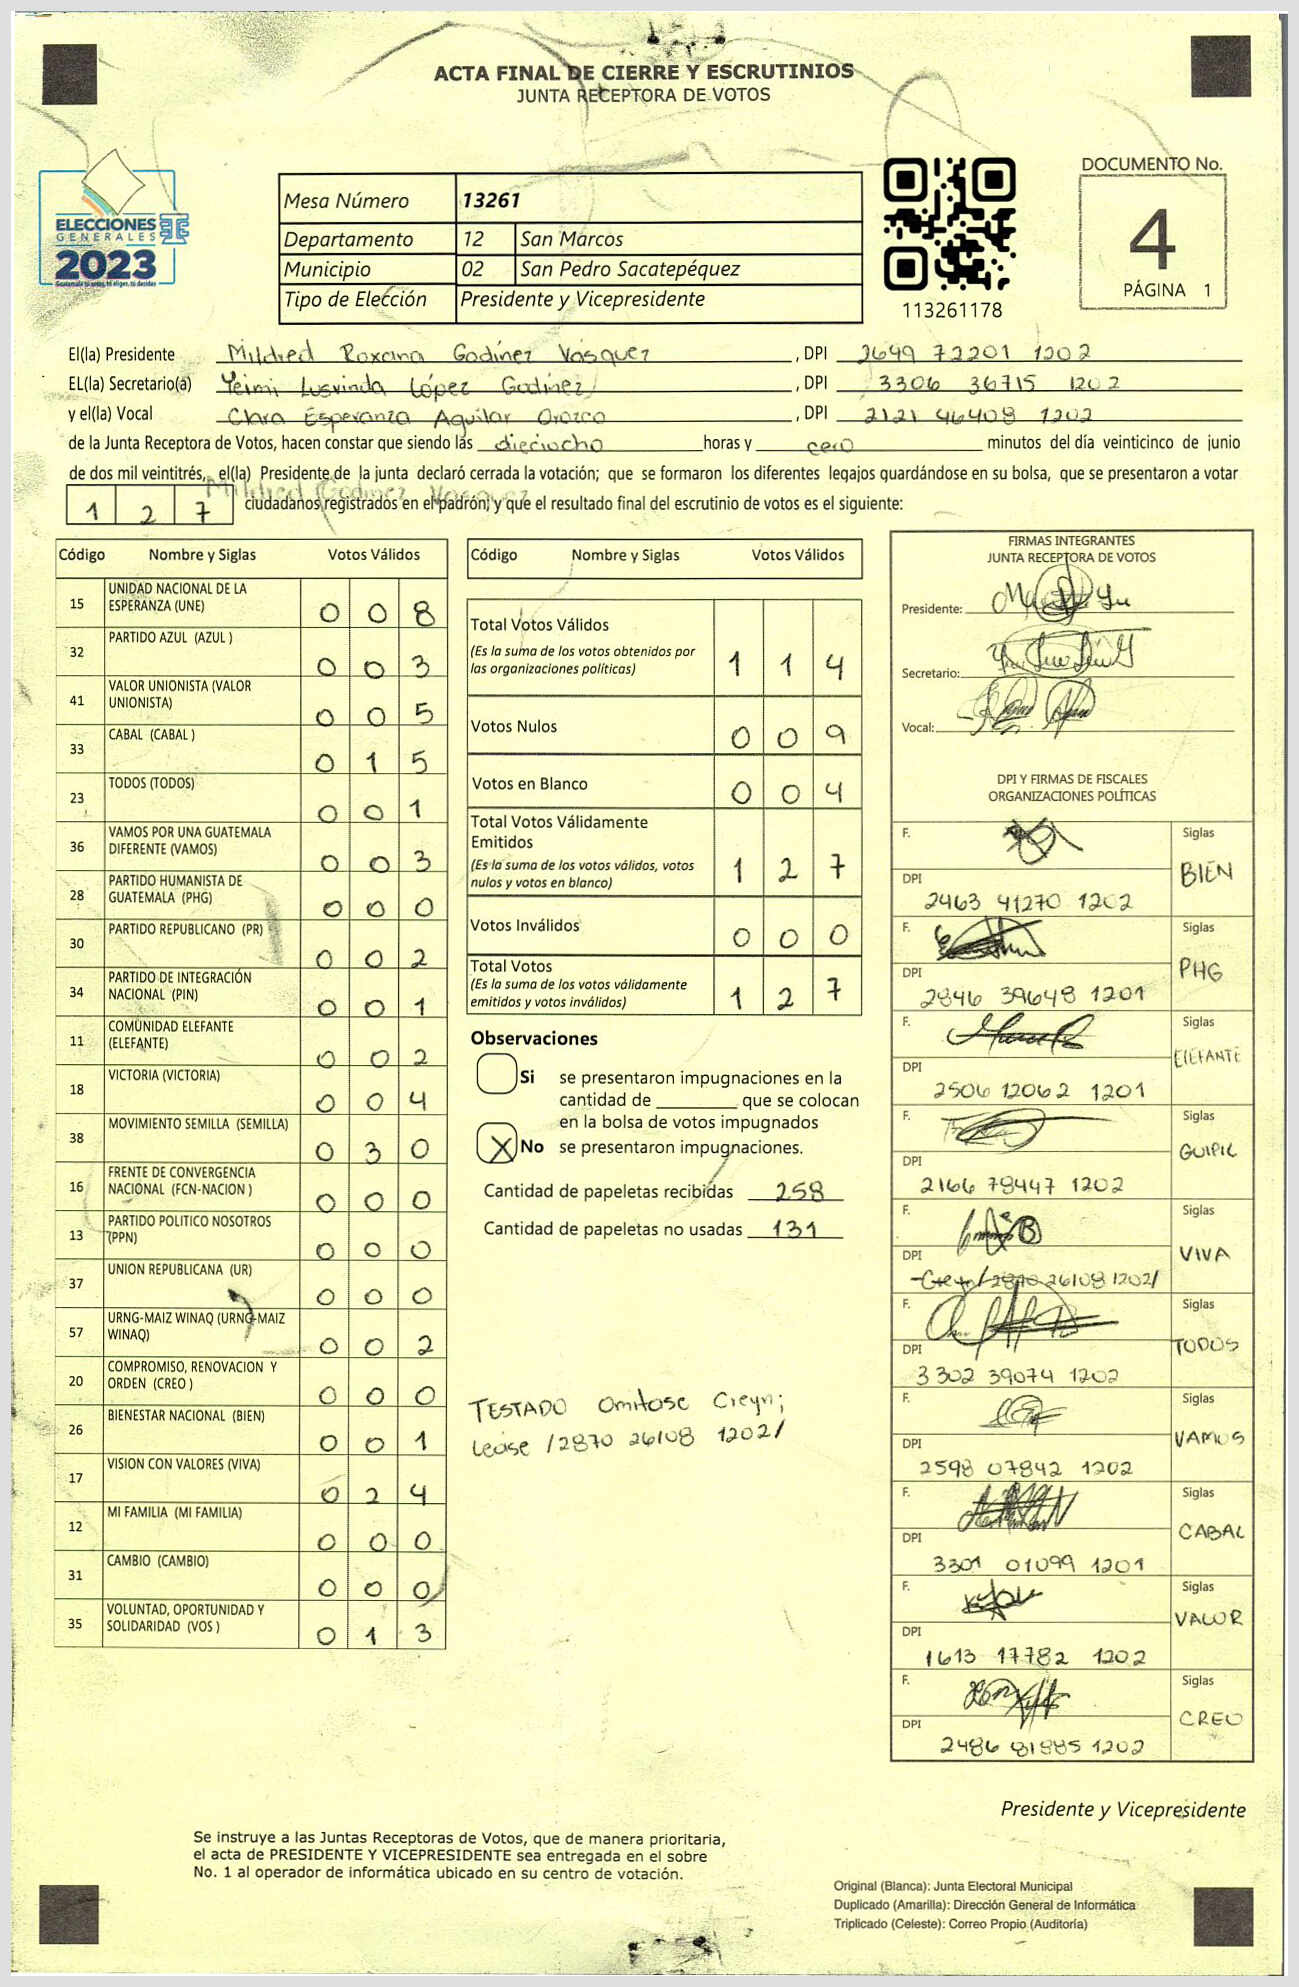 ACTA FINAL DE CIERRE Y ESCRUTINIOS
JUNTA RECEPTORA DE VOTOS
ELECCIONES
GENERALES
2023
Mesa Número 13261
Departamento 12 San Marcos
Municipio 02 San Pedro Sacatepéquez
Tipo de Elección Presidente y Vicepresidente
113261178
DOCUMENTO No.
4
PÁGINA 1
El(la) Presidente Mildred Roxana Godínez Vásquez, DPI 2649 72201 1202
EL(la) Secretario(a) Yeimi Lusvinda López Godínez, DPI 3306 36715 1202
y el(la) Vocal Clara Esperanza Aguilar Orozco, DPI 2121 46408 1202
de la Junta Receptora de Votos, hacen constar que siendo las dieciocho horas y cero minutos del día veinticinco de junio
de dos mil veintitrés, el(la) Presidente de la junta declaró cerrada la votación; que se formaron los diferentes legajos guardándose en su bolsa, que se presentaron a votar
Mildred Godinez Vasquez
1 2 7 ciudadanos registrados en el padrón; y que el resultado final del escrutinio de votos es el siguiente:
Código Nombre y Siglas Votos Válidos
15 UNIDAD NACIONAL DE LA ESPERANZA (UNE) 0 0 8
32 PARTIDO AZUL (AZUL ) 0 0 3
41 VALOR UNIONISTA (VALOR UNIONISTA) 0 0 5
33 CABAL (CABAL ) 0 1 5
23 TODOS (TODOS) 0 0 1
36 VAMOS POR UNA GUATEMALA DIFERENTE (VAMOS) 0 0 3
28 PARTIDO HUMANISTA DE GUATEMALA (PHG) 0 0 0
30 PARTIDO REPUBLICANO (PR) 0 0 2
34 PARTIDO DE INTEGRACIÓN NACIONAL (PIN) 0 0 1
11 COMUNIDAD ELEFANTE (ELEFANTE) 0 0 2
18 VICTORIA (VICTORIA) 0 0 4
38 MOVIMIENTO SEMILLA (SEMILLA) 0 3 0
16 FRENTE DE CONVERGENCIA NACIONAL (FCN-NACION ) 0 0 0
13 PARTIDO POLITICO NOSOTROS (PPN) 0 0 0
37 UNION REPUBLICANA (UR) 0 0 0
57 URNG-MAIZ WINAQ (URNG-MAIZ WINAQ) 0 0 2
20 COMPROMISO, RENOVACION Y ORDEN (CREO ) 0 0 0
26 BIENESTAR NACIONAL (BIEN) 0 0 1
17 VISION CON VALORES (VIVA) 0 2 4
12 MI FAMILIA (MI FAMILIA) 0 0 0
31 CAMBIO (CAMBIO) 0 0 0
35 VOLUNTAD, OPORTUNIDAD Y SOLIDARIDAD (VOS ) 0 1 3
Código Nombre y Siglas Votos Válidos
Total Votos Válidos 1 1 4
(Es la suma de los votos obtenidos por
las organizaciones políticas)
Votos Nulos 0 0 9
Votos en Blanco 0 0 4
Total Votos Válidamente
Emitidos 1 2 7
(Es la suma de los votos válidos, votos
nulos y votos en blanco)
Votos Inválidos 0 0 0
Total Votos 1 2 7
(Es la suma de los votos válidamente
emitidos y votos inválidos)
Observaciones
Si se presentaron impugnaciones en la
cantidad de ________ que se colocan
en la bolsa de votos impugnados
X No se presentaron impugnaciones.
Cantidad de papeletas recibidas 258
Cantidad de papeletas no usadas 131
TESTADO Omitase Creyn;
Lease /2870 26108 1202/
FIRMAS INTEGRANTES
JUNTA RECEPTORA DE VOTOS
Presidente:
Secretario:
Vocal:
DPI Y FIRMAS DE FISCALES
ORGANIZACIONES POLÍTICAS
F. Siglas BIEN
DPI 2463 41270 1202
F. Siglas PHG
DPI 2846 39648 1201
F. Siglas ELEFANTE
DPI 2506 12062 1201
F. Siglas GUIPIL
DPI 2166 78447 1202
F. Siglas VIVA
DPI 2870 26108 1202/
F. Siglas TODOS
DPI 3302 39074 1202
F. Siglas VAMOS
DPI 2598 07842 1202
F. Siglas CABAL
DPI 3301 01099 1201
F. Siglas VALOR
DPI 1613 17782 1202
F. Siglas CREO
DPI 2486 81885 1202
Presidente y Vicepresidente
Se instruye a las Juntas Receptoras de Votos, que de manera prioritaria,
el acta de PRESIDENTE Y VICEPRESIDENTE sea entregada en el sobre
No. 1 al operador de informática ubicado en su centro de votación.
Original (Blanca): Junta Electoral Municipal
Duplicado (Amarilla): Dirección General de Informática
Triplicado (Celeste): Correo Propio (Auditoría)